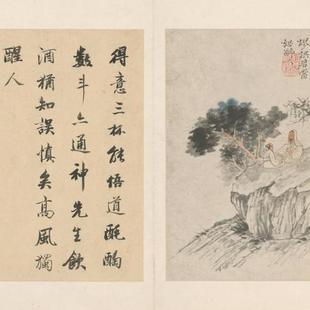 得意三杯能悟道酕醄
數斗亦通神先生飲
酒猶知誤慎矣高風獨
醒人